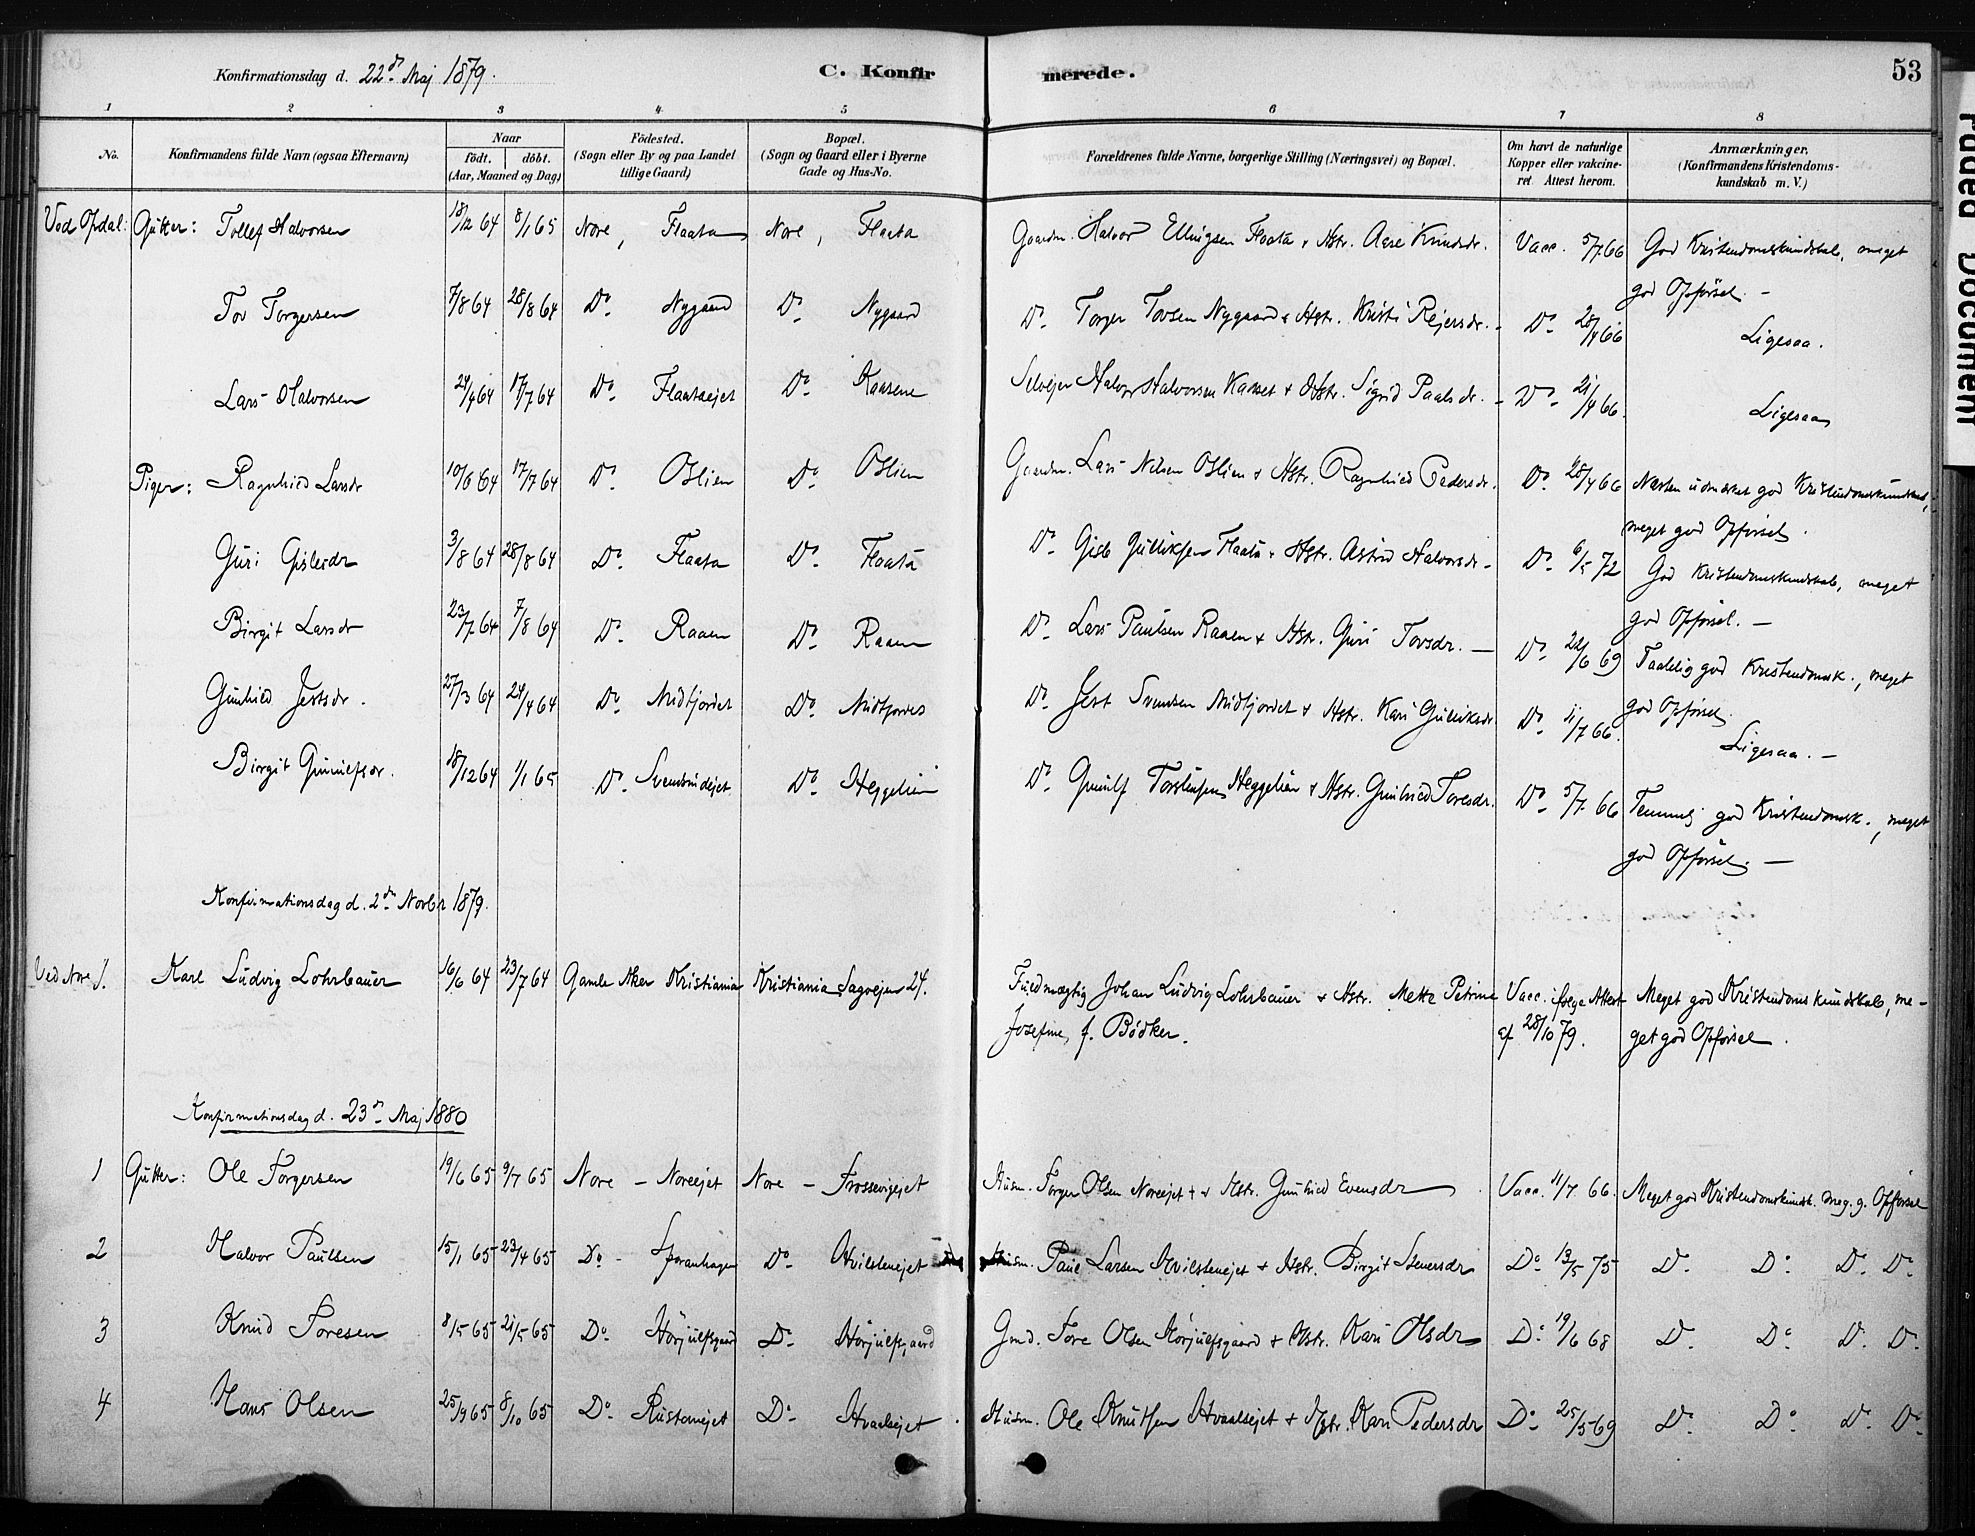 Konfirmationsdag d. 22de Maj 1879. C. Konfirmerede. 53
1 2 3 4 5 6 7 8
No. Konfirmandens fulde Navn (ogsaa Efternavn) Naar født. døbt. (Aar, Maaned og Dag) Födested. (Sogn eller By og paa Landet tillige Gaard) Bopæl. (Sogn og Gaard eller i Byerne Gade og Hus-No. Forældrenes fulde Navne, borgerlige Stilling (Næringsvei) og Bopæl. Om havt de naturlige Kopper eller vakcineret Attest herom. Anmærkninger. (Konfirmandens Kristendomskundskab m. V.)
Ved Opdal: Gutter: Tollef Halvorsen 18/12 64 8/1 65 Nore, Flaata Nore, Flaata Gaardm. Halvor Ellingsen Flaata & Hstr. Aase Knudsdr. Vacc. 5/7 66 God Kristendomskundskab, meget
god Opførsel. -
Tov Torgersen 7/8 64 28/8 64 Do Nygaard Do Nygaard Do Torger Tovsen Nygaard & Hstr. Kristi Rejersdr. - Do 28/4 66 Ligesaa.
Lars Halvorsen 24/4 64 17/7 64 Do Flaataejet Do Kaasene Selvejer Halvor Halvorsen Kaaset & Hstr. Sigrid Paalsdr. - Do 21/4 66. Ligesaa
Piger: Ragnhild Larsdr 10/6 64 17/7 64 Do Oslien Do Oslien Gaardm. Lars Nilsen Oslien & Hstr. Ragnhild Pedersdr. Do 28/4 66 Næsten udmærket god Kristendomskundskab,
meget god Opførsel.
Guri Gislesdr 3/8 64 28/8 64 Do Flaata Do Flaata Do Gisle Gulliksen Flaata & Hstr. Astrid Halvorsdr. - Do 6/5 72 God Kristendomskundskab, meget
god Opførsel. -
Birgit Larsdr 23/7 64 7/8 64 Do Raaen Do Raaen Do Lars Paulsen Raaen & Hstr. Guri Tovsdr. - Do 22/6 69 Taalelig god Kristendomsk., meget
god Opførsel.
Gunhild Jertsdr. 27/3 64 24/4 64 Do Midtfjordet Do Midtfjordet Do Jert Svensen Midtfjordet & Hstr. Kari Gulliksdr Do 11/7 66. Ligesaa. -
Birgit Gunulfsdr. 18/12 64 1/1 65 Do Svendsrudejet Do Heggelien Do Gunulf Torstensen Heggelien & Hstr. Gunhild Toresdr. Do 5/7 66 Temmelig god Kristendomsk., meget
god Opførsel. -
Konfirmationsdag d. 2den Novbr 1879.
Ved Nore 1. Karl Ludvig Lohrbauer 16/6 64 23/7 64 Gamle Aker Kristiania Kristiania Sagvejen 24. Fuldmægtig Johan Ludvig Lohrbauer & Hstr. Mette Petrine Vacc. ifølge Attest Meget god Kristendomskundskab, me-
Josefine f. Bödker. af 28/10 79. get god Opførsel.
Konfirmationsdag d. 23de Maj 1880
1 Gutter: Ole Torgersen 19/6 65 9/7 65 Nore - Noreejet Nore - Frossevigejet Husm. Torger Olsen Noreejet & Hstr. Gunhild Evensdr Vacc. 11/7 66. Meget god Kristendomskundsk. meg. g. Opførsel
2 Halvor Paulsen 15/1 65 23/4 65 Do - Do Hvilstenejet Husm. Paul Larsen Hvilstenejet & Hstr. Birgit Stenersdr Do 13/5 75 Do Do Do Do
3 Knud Toresen 8/5 65 21/5 65 Do Hörjulfsgaard Do Hörjulfsgaard Gmd. Tore Olsen Hörjulfsgaard & Hstr. Kari Olsdr Do 19/6 68 Do Do Do Do
4 Hans Olsen 25/9 65 8/10 65 Do Rustanejet Do Hvaalsejet Husm. Ole Knutsen Hvaalsejet & Hstr. Kari Pedersdr Do 25/5 69 Do Do Do Do
Faded Document